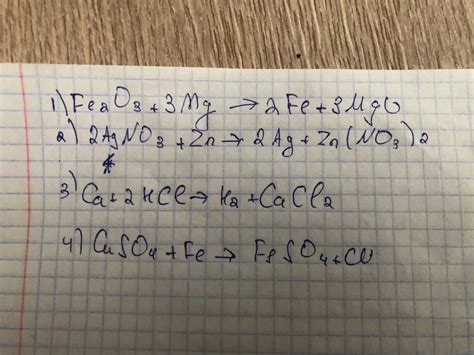 1) Fe2O3 + 3Mg → 2Fe + 3MgO
2) 2AgNO3 + Zn → 2Ag + Zn(NO3)2
3) Ca + 2HCl → H2 + CaCl2
4) CuSO4 + Fe → FeSO4 + Cu